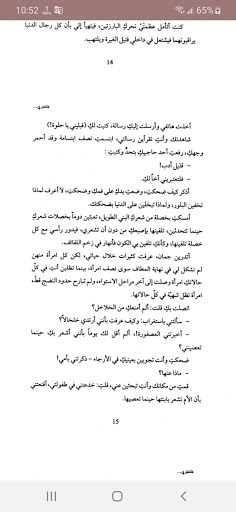 10:52
65%
كنت أتأمل عظمتيّ نحرك البارزتين، فيتهيأ إلي بأن كل رجال الدنيا
يراقبونهما فيشتعل في داخلي فتيل الغيرة ويلتهب.
14
أخذت هاتفي وأرسلت إليك رسالة، كتبت لك (قبليني يا حلوة!)
شاهدتك وأنت تقرأين رسالتي، ابتسمت نصف ابتسامة وقد أحمر
وجهك، رفعت أحد حاجبيك بتحدٍ وكتبت:
– قليل أدب!
– فلتعتبريني أخاً لك.
أذكر كيف ضحكت، وضعت يدك على فمك وضحكت، لا أعرف لماذا
تخفين البلور، ولماذا تبخلين على الدنيا بضحكتك.
أمسكت بخصلة من شعرك البني الطويل، تعبثين دوماً بخصلات شعرك
حينما تتحدثين، تلفينها بإصبعك من دون أن تشعري، فيدور رأسي مع كل
خصلة تلفينها، وكأنك تلفين بي الكون فأنهار في زحم اللفائف.
أتدرين جمان، عرفت كثيرات خلال حياتي، لكن كل امرأة منهن
لم تشكل لي في نهاية المطاف سوى نصف امرأة، بينما تظلين أنت في كل
حالاتك امرأة وصلت إلى آخر مراحل الاستواء، ولم تبارح حدود النضج قط،
امرأة تظل شهيّة في كل حالاتها.
اتصلت بك قلت: ألم أمنعك من الخلاخل؟
– سألتني باستغراب: وكيف عرفت بأنني أرتدي خلخالاً؟
– أخبرتني العصفورة!، ألم أقل لك يوماً بأنني أشعر بك حينما
تعصينني؟
ضحكت وأنت تجوبين بعينيك في الأرجاء – ذكرتني بأمي!
– ماذا عنها؟
قمت من مكانك وأنت تبحثين عني، قلت: خدعتني في طفولتي، أقنعتني
بأن الأم تشعر بابنتها حينما تعصيها.
15